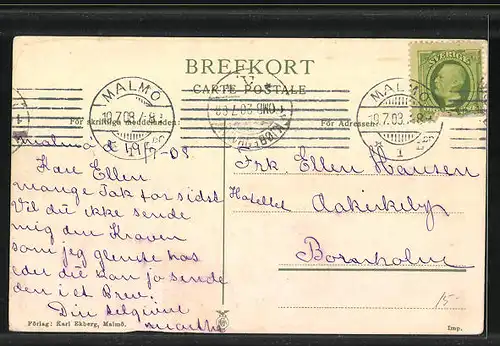 BREFKORT
CARTE POSTALE
SVERIGE
MALMÖ
MALMÖ
För skriftliga meddelanden:
För Adressen:
Malmø d 19/7-08
Kære Ellen
mange Tak for sidst
Vil du ikke sende
mig den Kraven
som jeg glemte hos
eder du kan jo sende
den i et Brev.
Din hengivne
Marthe
Frk Ellen Hansen
Hotellet Aakirkeby
Bornholm
15-
Förlag: Karl Ekberg, Malmö.
Imp.